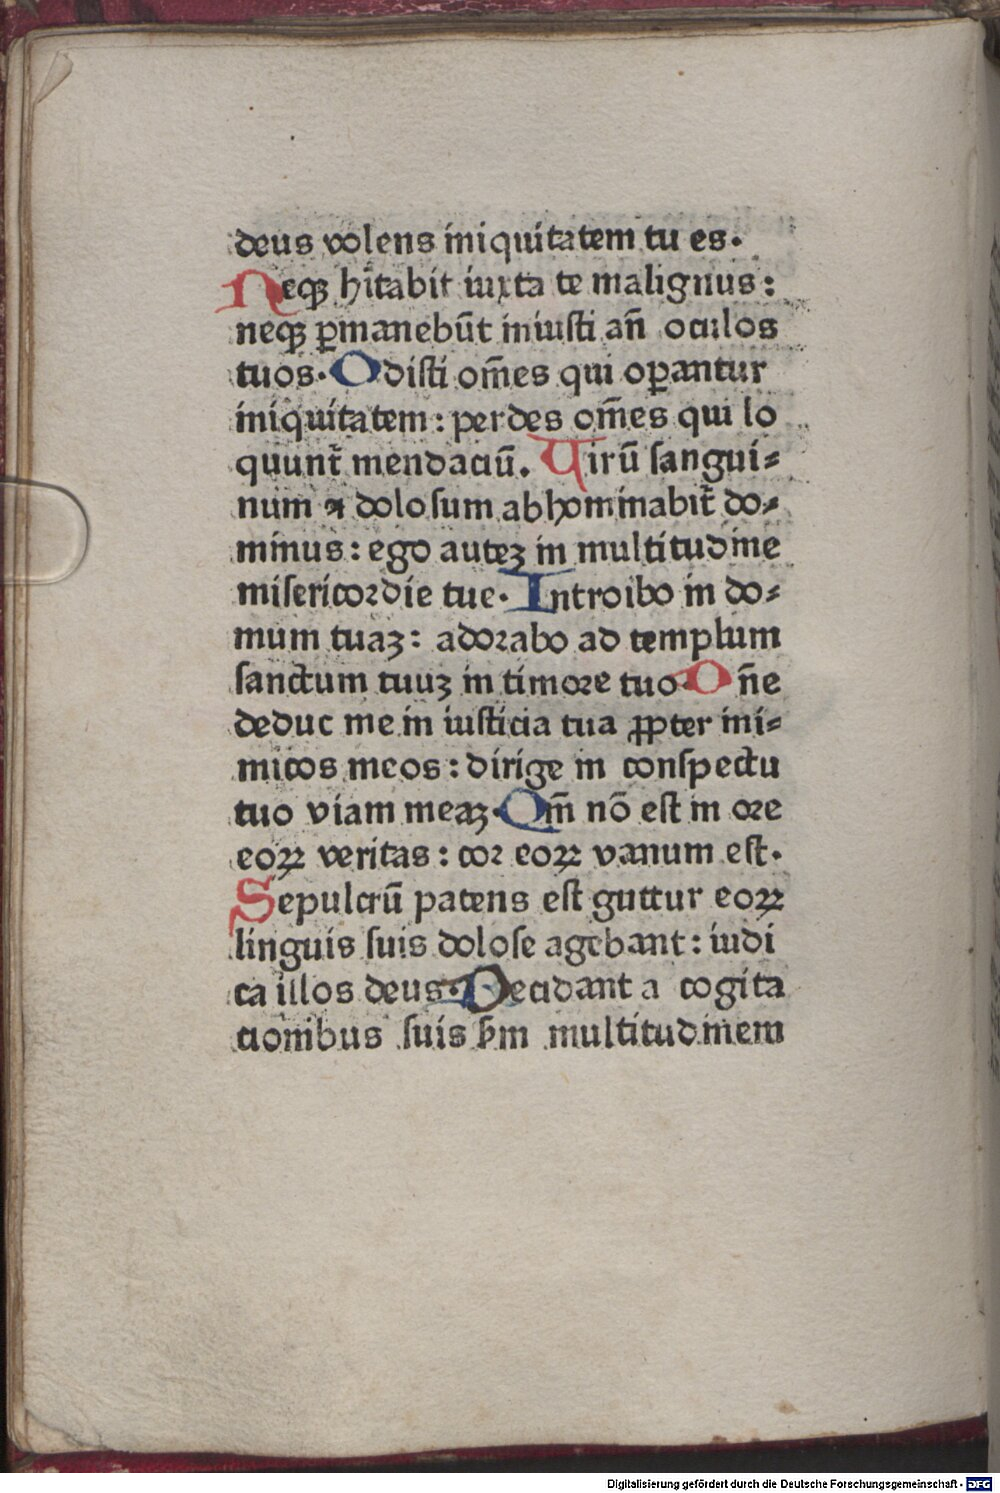 deus volens iniquitatem tu es.
Neqꝫ hĩtabit iuxta te malignus:
neqꝫ ꝑmanebũt iniusti añ oculos
tuos. Odisti om̃es qui oꝑantur
iniquitatem: perdes om̃es qui lo
quunt᷑ mendaciũ. Virũ sangui⸗
num ⁊ dolosum abhominabit᷑ do⸗
minus: ego auteꝫ in multitudine
misericordie tue. Introibo in do⸗
mum tuaꝫ: adorabo ad templum
sanctum tuuꝫ in timore tuo. Dñe
deduc me in iusticia tua ꝓpter ini⸗
micos meos: dirige in conspectu
tuo viam meaꝫ. Qm̃ nõ est in ore
eoꝝ veritas: cor eoꝝ vanum est.
Sepulcrũ patens est guttur eoꝝ
linguis suis dolose agebant: iudi
ca illos deus. Decidant a cogita
cionibus suis ẜm multitudinem
Digitalisierung gefördert durch die Deutsche Forschungsgemeinschaft - DFG